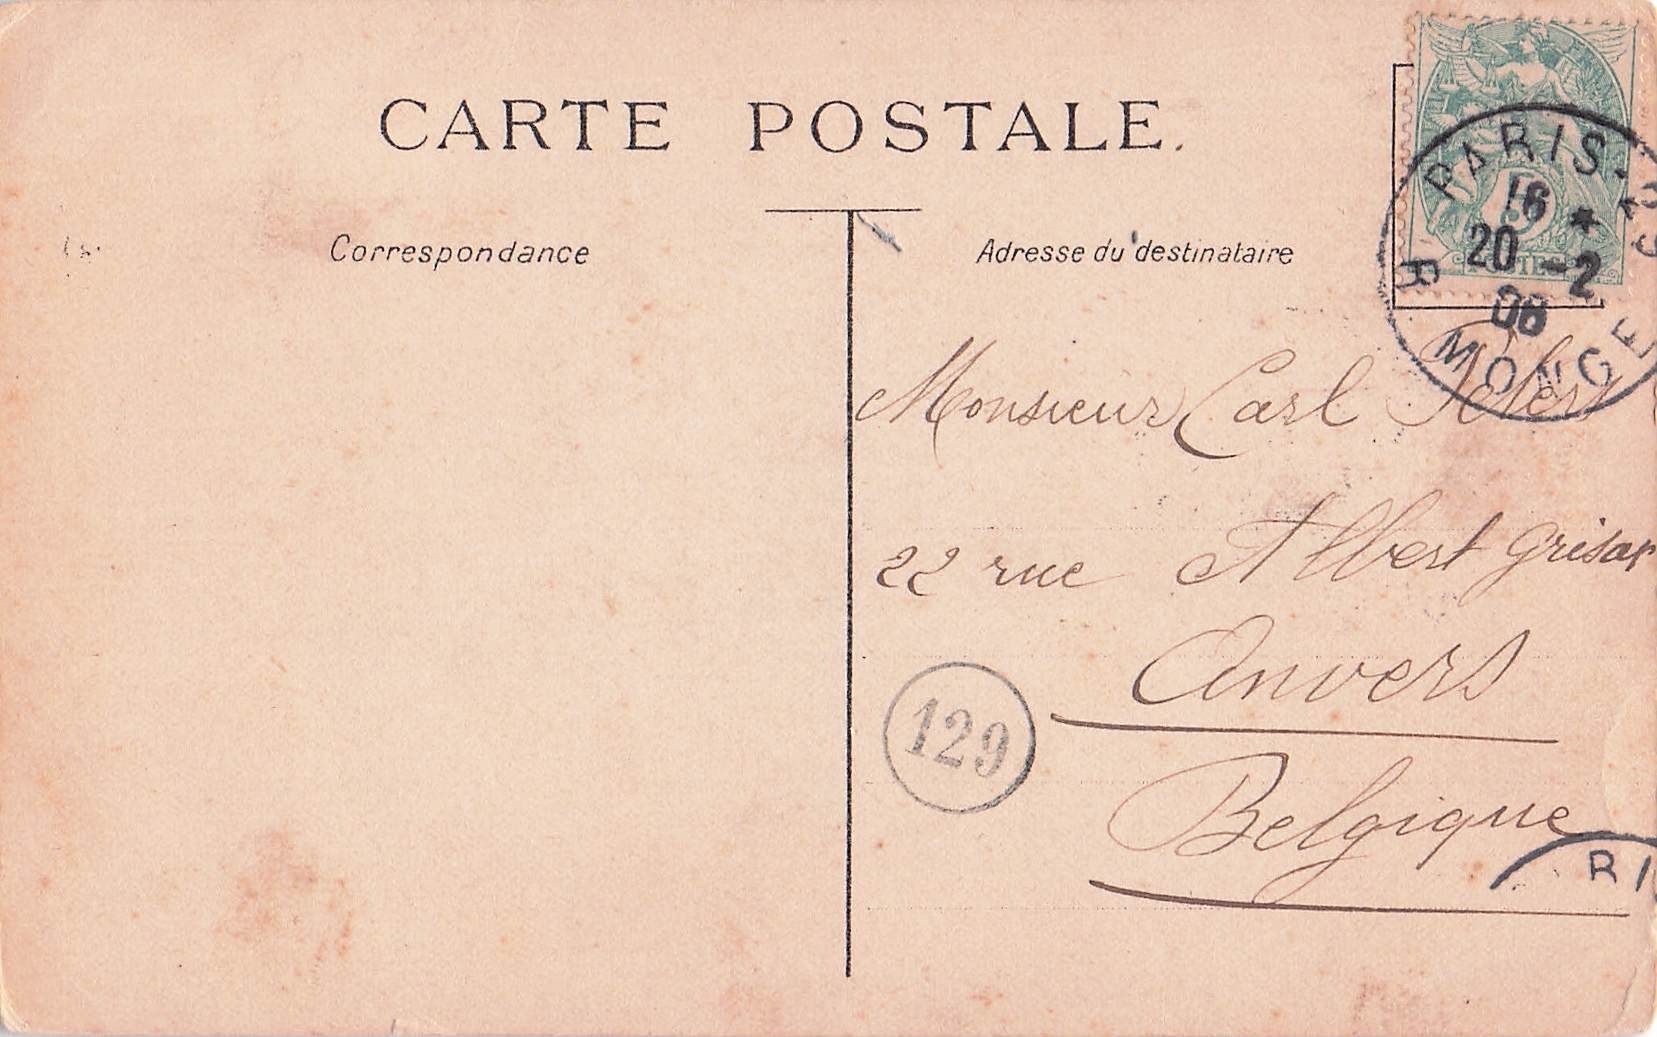 CARTE POSTALE.
Correspondance
Adresse du destinataire
PARIS
16
20 -2
08
R MONGE
POSTES
Monsieur Carl
22 rue Albert Grisar
Anvers
129
Belgique